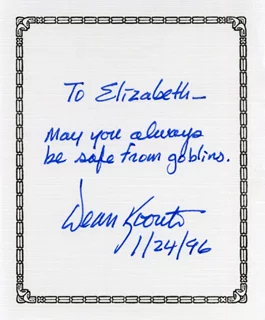 To Elizabeth—
May you always
be safe from goblins.
Dean Koontz
1/24/96